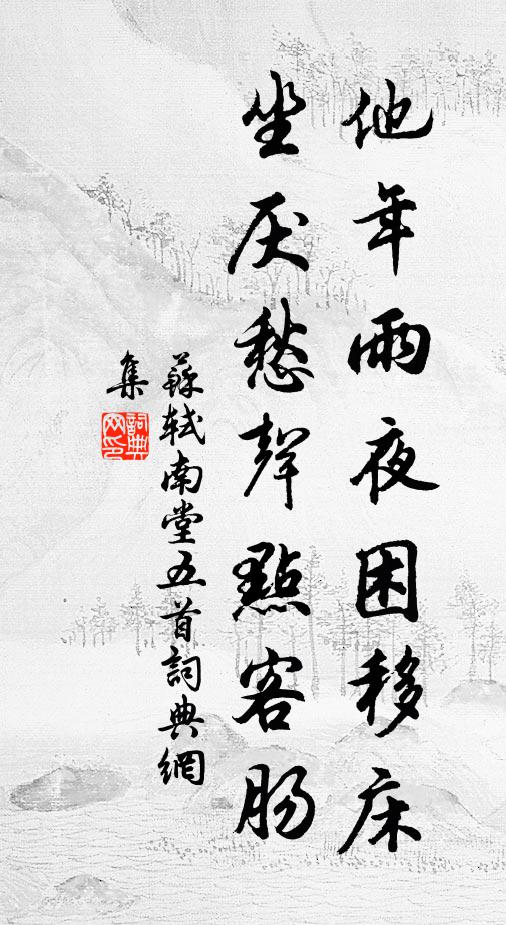 他年雨夜困移床
坐厌愁聲點客肠
蘇軾南堂五首詞典網
集
詞典網印